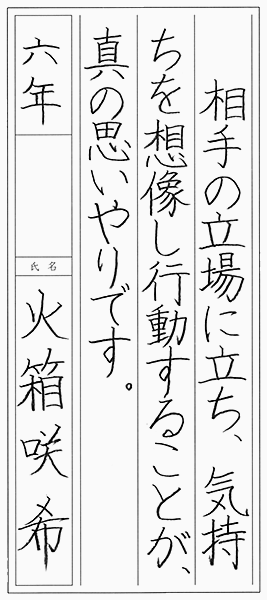 相手の立場に立ち、気持
ちを想像し行動することが、
真の思いやりです。
六年
氏名
火箱咲希